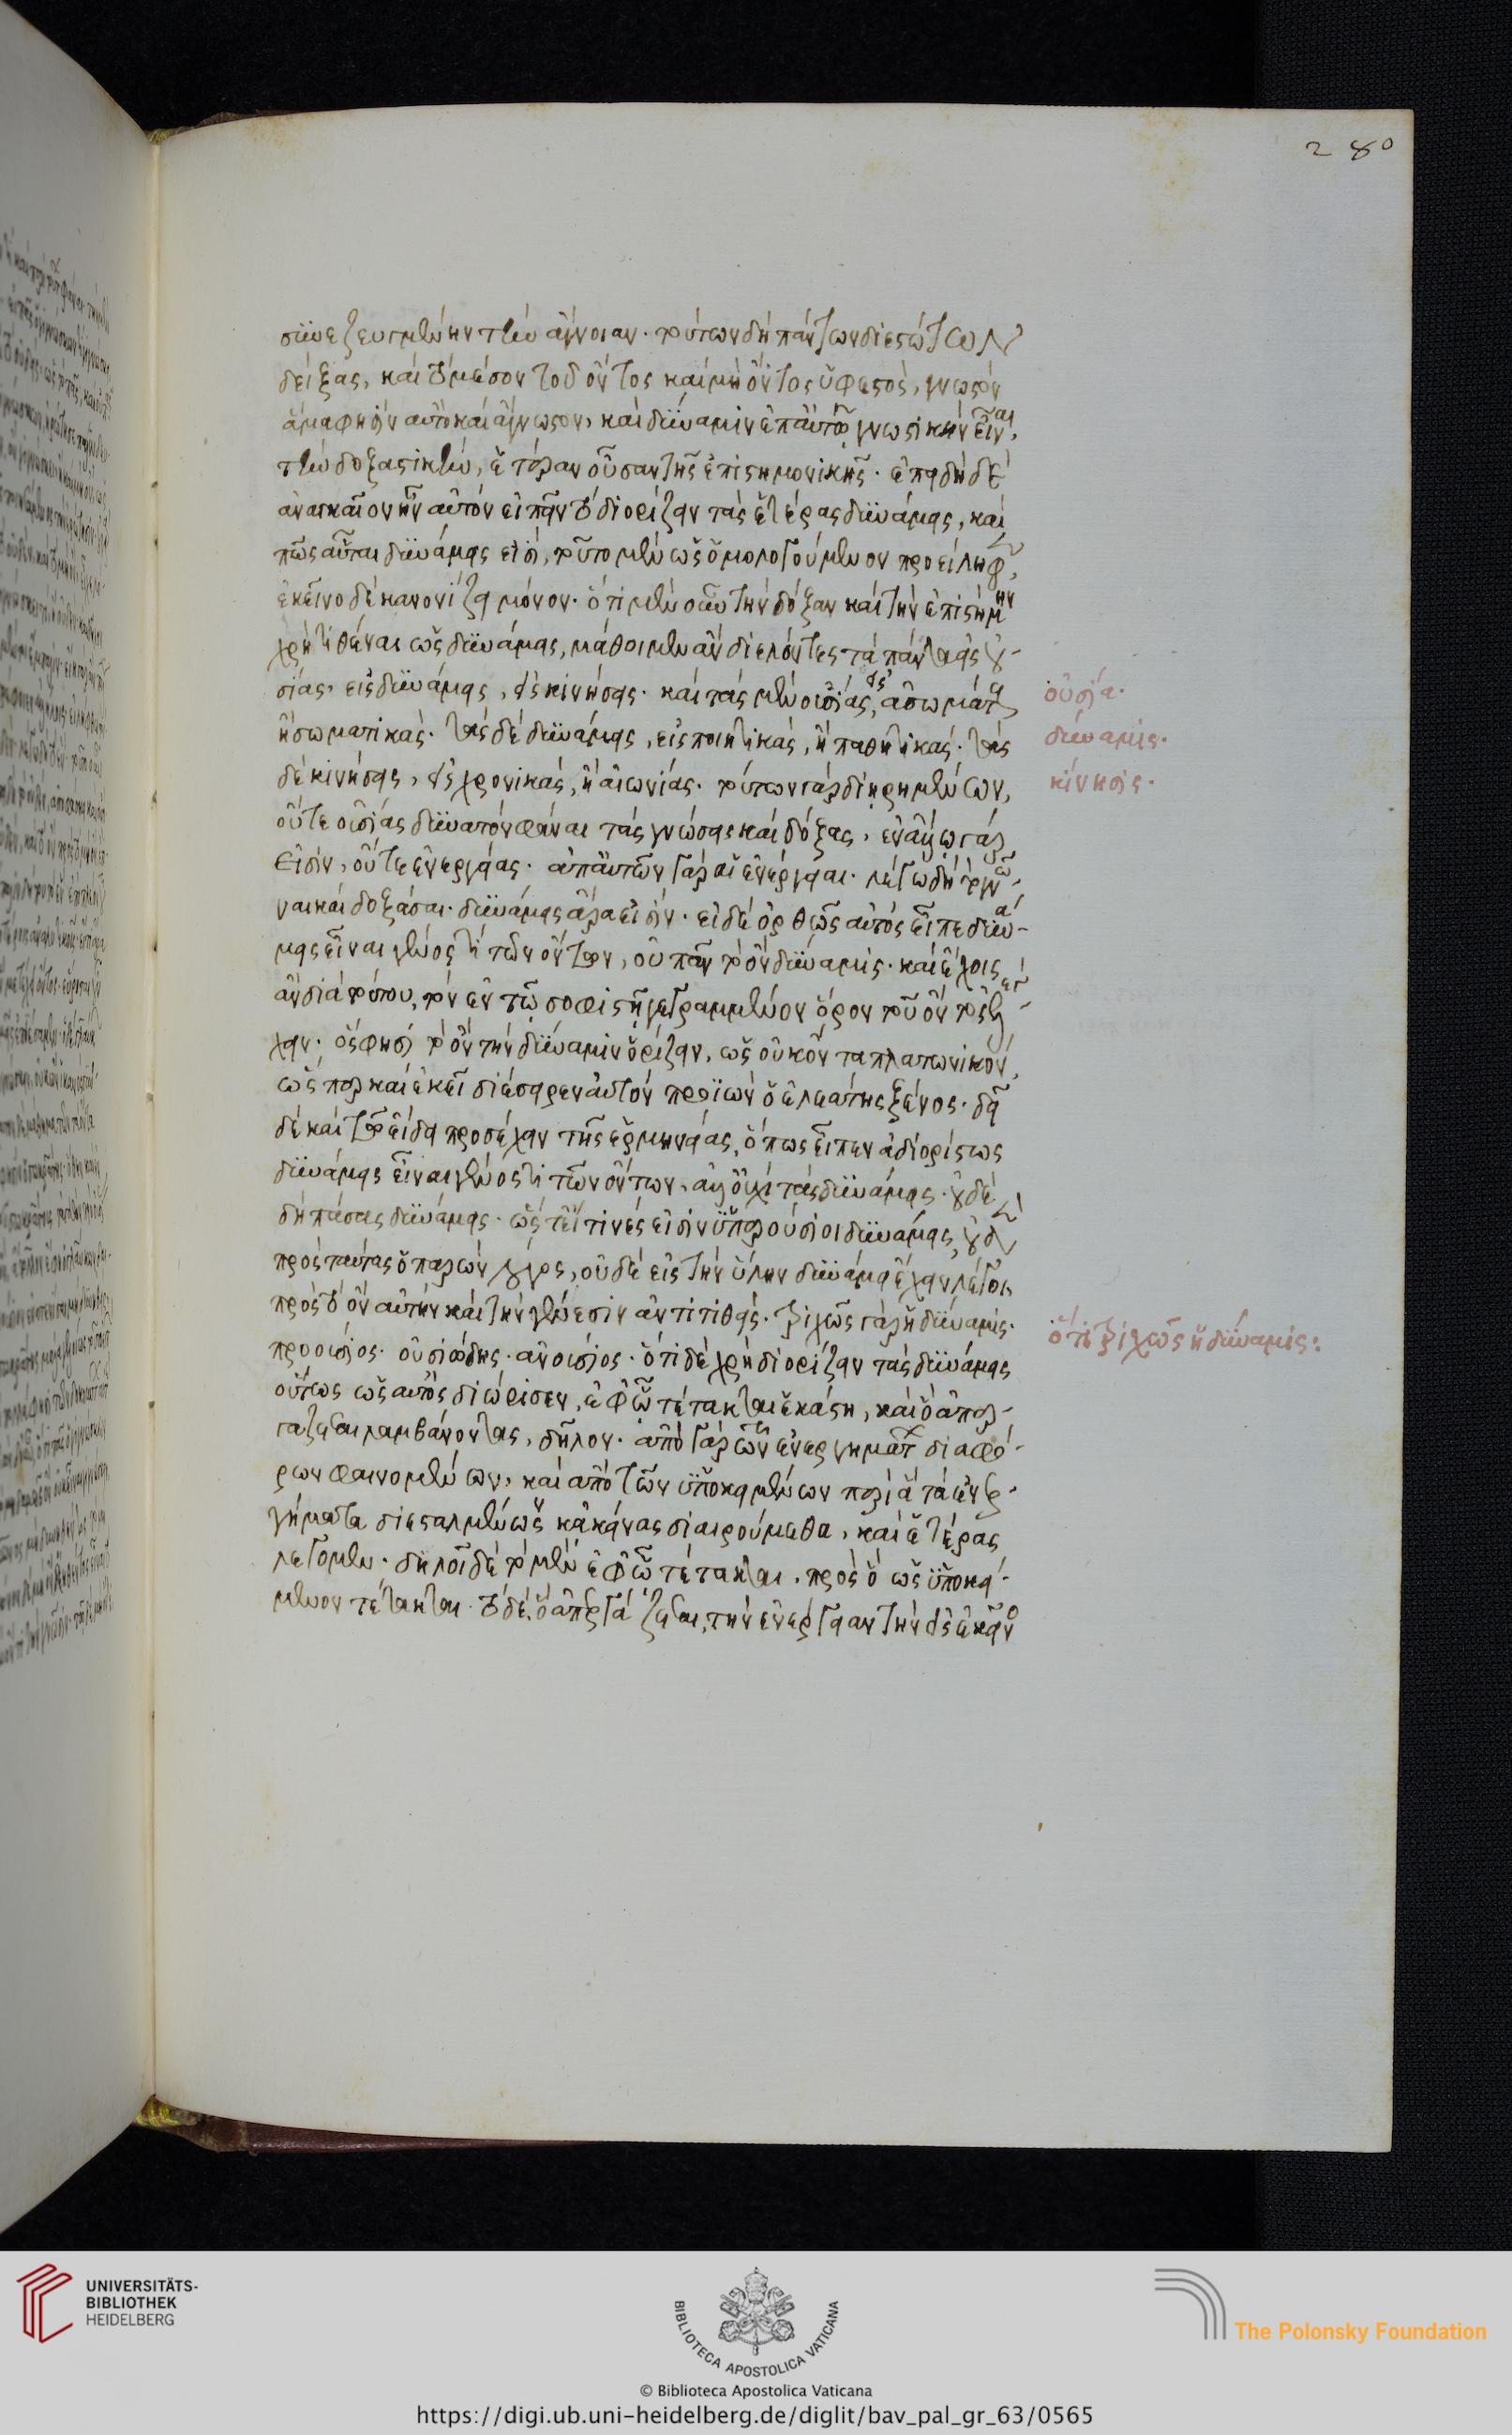 280
συνεζευγμένην τὴν ἄγνοιαν· τούτων δὴ πάντων διεστώτων
δείξας, καὶ τὸ μέσον τοῦ ὄντος καὶ μὴ ὄντος ὑφεστὸς, γνωστὸν
ἅμα φησὶν αὐτὸ καὶ ἄγνωστον, καὶ δύναμιν ἐπ' αὐτῷ γνωστικὴν εἶναι,
τὴν δοξαστικὴν, ἑτέραν οὖσαν τῆς ἐπιστημονικῆς· ἐπειδὴ δὲ
ἀναγκαῖον ἦν αὐτὸν εἰπεῖν τὸ διορίζειν τὰς ἑτέρας δυνάμεις, καὶ
πῶς αὗται δυνάμεις εἰσὶ, τοῦτο μὲν ὡς ὁμολογούμενον προείληφεν,
ἐκεῖνο δὲ κανονίζει μόνον· ὅτι μὲν οὖν τὴν δόξαν καὶ τὴν ἐπιστήμην
χρὴ τιθέναι ὡς δυνάμεις, μάθοιμεν ἂν διελόντες τὰ πάντα εἰς οὐ-
σίας· εἰς δυνάμεις, εἰς κινήσεις· καὶ τὰς μὲν οὐσίας, εἰς ἀσωμάτους
ἢ σωματικάς· τὰς δὲ δυνάμεις, εἰς ποιητικάς, ἢ παθητικάς· τὰς
δὲ κινήσεις, εἰς χρονικάς, ἢ αἰωνίας· τούτων γὰρ διῃρημένων,
οὔτε οὐσίας δυνατὸν φάναι τὰς γνώσεις καὶ δόξας, ἐν ἄλλῳ γάρ
εἰσιν, οὔτε ἐνεργείας· ἀπ' αὐτῶν γὰρ αἱ ἐνέργειαι· λέγω δὴ τὸ γνῶ-
ναι καὶ δοξάσαι· δυνάμεις ἄρα εἰσίν· εἰ δὲ ὀρθῶς αὐτὸς εἶπε δυνά-
μεις εἶναι γένος τι τῶν ὄντων, οὐ πᾶν τὸ ὂν δύναμις· καὶ ἔχοις
ἂν διὰ τούτου, τὸν ἐν τῷ σοφιστῇ γεγραμμένον ὅρον τοῦ ὄντος ἐλέγ-
χειν· ὅς φησι τὸ ὂν τὴν δύναμιν ὁρίζειν, ὡς οὐκ ὄντα πλατωνικόν,
ὥσπερ καὶ ἐκεῖ διέσυρεν αὐτὸν προϊὼν ὁ ἐλεάτης ξένος· δεῖ
δὲ καὶ τῷ εἴδει προσέχειν τῆς ἑρμηνείας, ὅπως εἶπεν ἀδιορίστως
δυνάμεις εἶναι γένος τι τῶν ὄντων, ἀλλ' οὐχὶ τὰς δυνάμεις· οὐδὲ
δὴ πάσας δυνάμεις· ὥστε εἴ τινές εἰσιν ὑπερούσιοι δυνάμεις, οὐδὲν
πρὸς ταύτας ὁ παρὼν λόγος, οὐδὲ εἰς τὴν ὕλην δυνάμει ἔχειν λέγοι
πρὸς τὸ ὂν αὐτὴν καὶ τὴν γένεσιν ἀντιτιθείς· τριχῶς γὰρ ἡ δύναμις·
προούσιος· οὐσιώδης· ἀνούσιος· ὅτι δὲ χρὴ διορίζειν τὰς δυνάμεις
οὕτως ὡς αὐτὸς διώρισεν, ἐφ' ᾧ τέτακται ἑκάστη, καὶ ὃ ἀπερ-
γάζεται λαμβάνοντας, δῆλον· ἀπὸ γὰρ τῶν ἐνεργημάτων διαφό-
ρων φαινομένων, καὶ ἀπὸ τῶν ὑποκειμένων περὶ ἃ τὰ ἐνερ-
γήματα διεσταλμένως κἀκείνας διαιρούμεθα, καὶ ἑτέρας
λέγομεν· δηλοῖ δὲ τὸ μὲν ἐφ' ᾧ τέτακται, πρὸς ὃ ὡς ὑποκεί-
μενον τέτακται· τὸ δὲ, ὃ ἀπεργάζεται, τὴν ἐνέργειαν τὴν εἰς ἐκεῖνο
οὐσία·
δύναμις·
κίνησις·
ὅτι τριχῶς ἡ δύναμις:
UNIVERSITÄTS-
BIBLIOTHEK
HEIDELBERG
BIBLIOTECA APOSTOLICA VATICANA
The Polonsky Foundation
© Biblioteca Apostolica Vaticana
https://digi.ub.uni-heidelberg.de/diglit/bav_pal_gr_63/0565